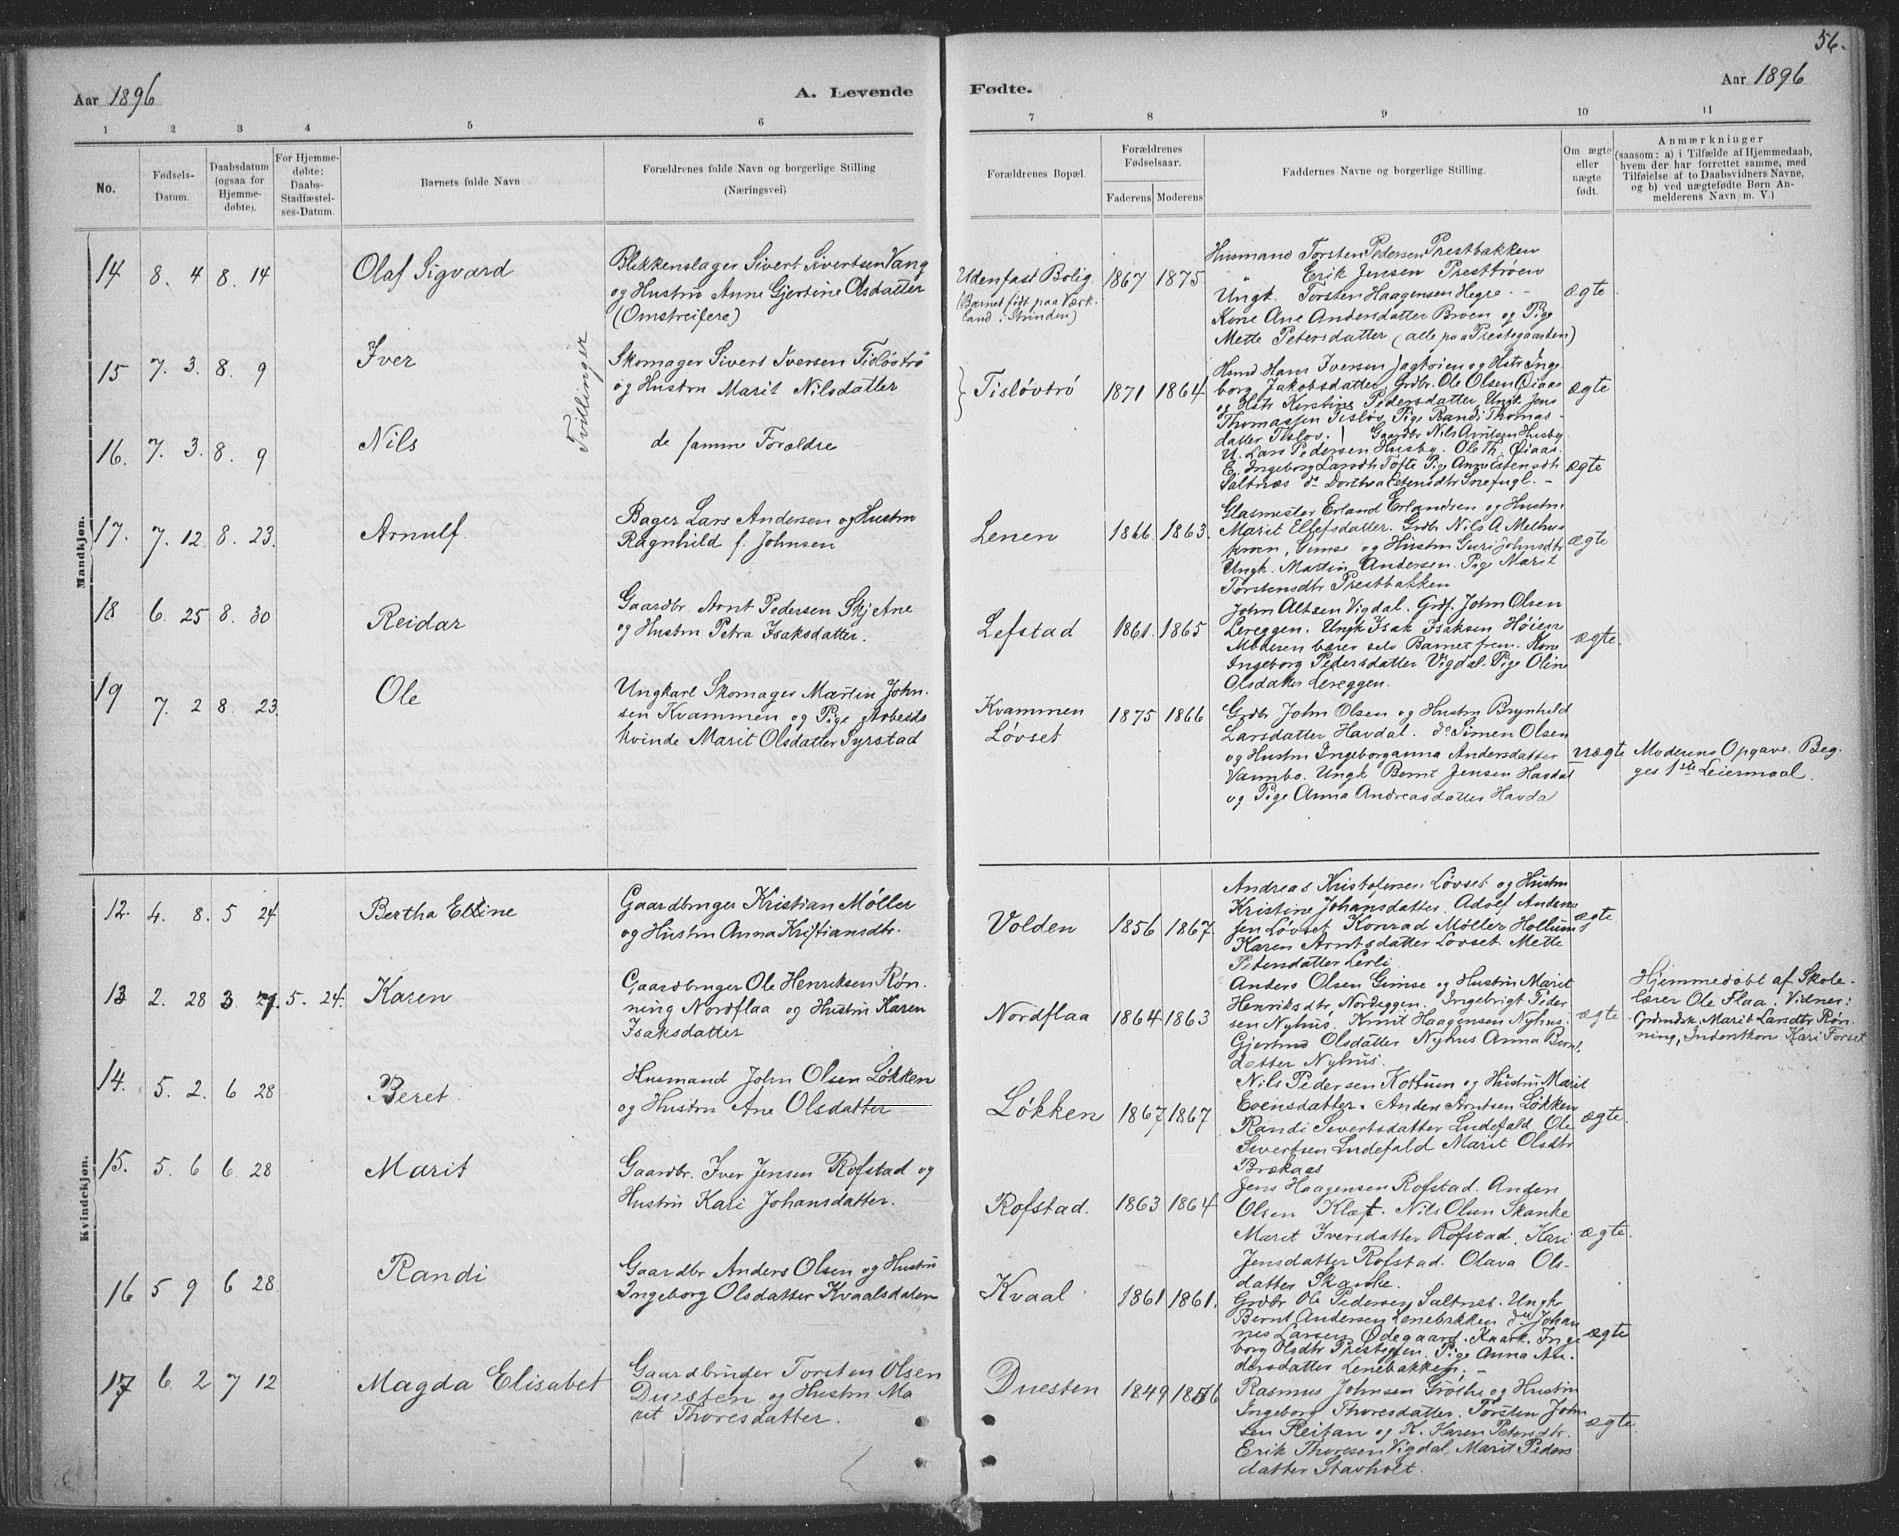 56.
Aar 1896
A. Levende
Fødte.
Aar 1896
1 2 3 4 5 6 7 8 9 10 11
No.
Fødsels-
Datum.
Daabsdatum
(ogsaa for
Hjemme-
døbte).
For Hjemme-
døbte:
Daabs-
Stadfæstel-
ses-Datum.
Barnets fulde Navn
Forældrenes fulde Navn og borgerlige Stilling
(Næringsvei)
Forældrenes Bopæl.
Forældrenes
Fødselsaar.
Faderens Moderens
Faddernes Navne og borgerlige Stilling.
Om ægte
eller
uægte
født.
Anmærkninger
(saasom: a) i Tilfælde af Hjemmedaab,
hvem der har forrettet samme, med
Tilføielse af to Daabsvidners Navne,
og b) ved uægtefødte Børn An-
melderens Navn m. V.)
Mandkjøn.
14 8. 4 8. 14
Olaf Sigvard
Blikkenslager Sivert Sivertsen Vang
og Hustru Anne Gjertine Olsdatter
(Omstreifere)
Udenfast Bolig.
(Barnet født paa Værk-
land i Strinden)
1867 1875
Husmand Torsten Pedersen Prestbakken
" Erik Jensen Prestteroen
Ungk. Torsten Haagensen Hegre -
Kone Ane Andersdatter Broen og Pige
Mette Petersdatter (alle paa Prestegaarden)
ægte
15 7. 3. 8. 9
Iver
Tvillinger
Skomager Sivert Iversen Tisløvtrø
og Hustru Marit Nilsdatter
Tisløvtrø
1871 1864
Hsmd Hans Iversen Jagtøien og Hstr Inge
borg Jakobsdatter, Grdbr. Ole Olsen Øiaas
og Hstr Kirstine Pedersdatter Ungk Jens
Thomassen Tisløv, Pige Randi Thomas-
datter Tisløv.
ægte
16. 7. 3. 8. 9
Nils
de samme Forældre
Gaardbr Nils Arntsen Husby.
U. Lars Pedersen Husby. Ole Th. Øiaas.
E. Ingeborg Larsdtr Tofte Pige Anne Estensdtr
Saltnæs do Dorthea Estensdtr Snefugl. -
ægte
17. 7. 12 8. 23.
Arnulf.
Bager Lars Andersen og Hustru
Ragnhild f. Johnsen
Lenen
1866. 1863.
Glasmester Erland Erlandsen og Hustru
Marit Ellefsdatter. Grdbr Nils A. Melhus
Gimse og Hustru Guri Johnsdtr
Ungk. Martin Andersen. Pige Marit
Torstensdtr Prestbakken
ægte
18 6. 25 8. 30
Reidar
Gaardbr. Arnt Pedersen Skjetne
og Hustru Petra Isaksdatter.
Lefstad
1861. 1865
John Altsen Vigdal. Grdf. John Olsen
Lereggen. Ungk Isak Isaksen Høien
Moderen bærer selv Barnet frem. Kone
Ingeborg Pedersdatter Vigdal. Pige Olin
Olsdatter Lereggen.
ægte.
19 7. 2 8. 23.
Ole
Ungkarl Skomager Martin John-
sen Kvammen og Pige Arbeids
kvinde Marit Olsdatter Syrstad
Kvammen
Løvset
1875 1866
Grdbr John Olsen og Hustru Brynhild
Larsdatter Havdal. do Simen Olsen
og Hustru Ingeborganna Andersdatter
Vammbo. Ungk Bernt Jensen Havdal
og Pige Anna Andreasdatter Havda
uægte
Moderens Opgave. Beg-
ges 1ste Leiermaal.
Kvindekjøn.
12. 4. 8. 5 24
Bertha Elline
Gaardbruger Kristian Møller
og Hustru Anna Kristiansdtr.
Volden
1856 1867.
Andreas Kristofersen Løvset og Hustru
Kristine Johansdatter. Adolf Anders
sen Løvset Konrad Møller Hollum
Karen Arntsdatter Løvset Mette
Petersdatter Lerli
ægte
13 2. 28 3 27. 5. 24.
Karen
Gaardbruger Ole Henriksen Røn-
ning Nordflaa og Hustru Karen
Isaksdatter
Nordflaa
1864 1863
Anders Olsen Gimse og Hustru Marit
Henriksdtr, Nordeggen. Ingebrigt Peder
sen Nyhus. Knut Haagensen Nyhus.
Gjertrud Olsdatter Nyhus Anna Bernt
datter Nyhus.
ægte
Hjemmedøbt af Skole-
lærer Ole Flaa. Vidner:
Grdmdsk. Marit Larsdtr Røn-
ning, Inderstkon Kari Forset
14. 5. 2. 6 28
Beret
Husmand John Olsen Løkken
og Hustru Ane Olsdatter
Løkken
1867. 1867
Nils Pedersen Kottum og Hustru Marit
Evensdatter. Anders Arntsen Løkken
Randi Sivertsdatter Ludefald Ole
Sivertsen Ludefald Marit Olsdtr
Brækaas
ægte.
15. 5. 6 6 28
Marit
Gaardbr. Iver Jensen Rofstad og
Hustru Kari Johansdatter.
Rofstad.
1863 1864
Jens Haagensen Rofstad. Anders
Olsen Klæt. Nils Olsen Skanke
Marit Iversdatter Rofstad. Kari
Jensdatter Rofstad. Olava Ols-
datter Skanke.
ægte.
16 5 9 6 28
Randi
Gaardbr Anders Olsen og Hustru
Ingeborg Olsdatter Kvaalsdalen
Kvaal
1861 1861.
Grdbr Ole Pedersen Saltnes. Ungk
Bernt Andersen Lenebakken do Johan
nes Larsen Ødegaard. Kaark. Inge
borg Olsdtr Prestegden. Pige Anna An-
dersdatter Lenebakken. -
ægte
17 6 2 7 12
Magda Elisabet
Gaardbruder Torsten Olsen
Duesten og Hustru Ma
rit Thoresdatter.
Duesten
1849 1856
Rasmus Johnsen Grøthe og Hustru
Ingeborg Thoresdatter. Torsten John
sen Reitan og K. Karen Petersdtr.
Erik Thoresen Vigdal, Marit Peders
datter Stavholt.
ægte.